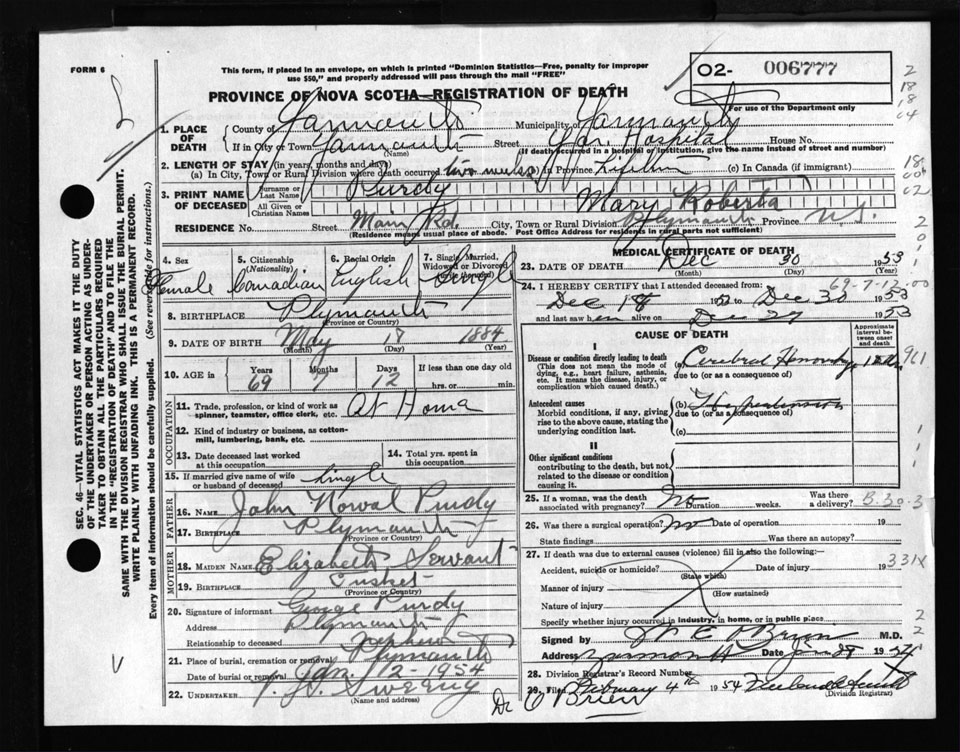 FORM 6
This form, if placed in an envelope, on which is printed "Dominion Statistics—Free, penalty for improper
use $50," and properly addressed will pass through the mail "FREE"
02- 006777
For use of the Department only
PROVINCE OF NOVA SCOTIA—REGISTRATION OF DEATH
1. PLACE OF DEATH
County of Yarmouth Municipality of Yarmouth
If in City or Town Yarmouth Street Yar. Hospital House No.
(Name) (If death occurred in a hospital or institution, give the name instead of street and number)
2. LENGTH OF STAY (in years, months and days)
(a) In City, Town or Rural Division where death occurred two weeks (b) In Province Lifetime (c) In Canada (if immigrant)
3. PRINT NAME OF DECEASED
Surname or Last Name Purdy
All Given or Christian Names Mary Roberta
RESIDENCE No. Street Main Rd. City, Town or Rural Division Plymouth Province N.S.
(Residence means usual place of abode. Post Office Address for residents in rural parts not sufficient)
4. Sex Female
5. Citizenship (Nationality) Canadian
6. Racial Origin English
7. Single, Married, Widowed or Divorced Single
8. BIRTHPLACE Plymouth
(Province or Country)
9. DATE OF BIRTH May 18 1884
(Month) (Day) (Year)
10. AGE in Years 69 Months 7 Days 12 If less than one day old
hrs. or min.
OCCUPATION
11. Trade, profession, or kind of work as spinner, teamster, office clerk, etc. At Home
12. Kind of industry or business, as cotton-mill, lumbering, bank, etc.
13. Date deceased last worked at this occupation
14. Total yrs. spent in this occupation
15. If married give name of wife or husband of deceased Single
FATHER
16. Name John Nowal Purdy
17. Birthplace Plymouth
(Province or Country)
MOTHER
18. MAIDEN NAME Elizabeth Servant
19. BIRTHPLACE
(Province or Country)
20. Signature of informant George Purdy
Address Plymouth
Relationship to deceased Nephew
21. Place of burial, cremation or removal Plymouth
Date of burial or removal Jan. 12 1954
22. UNDERTAKER Sweeny
(Name and address)
MEDICAL CERTIFICATE OF DEATH
23. DATE OF DEATH Dec 30 1953
(Month) (Day) (Year)
69-7-12-00
24. I HEREBY CERTIFY that I attended deceased from:
Dec 18 to Dec 30 1953
and last saw her alive on Dec 29 1953
CAUSE OF DEATH
Approximate interval between onset and death
I
Disease or condition directly leading to death
(This does not mean the mode of dying, e.g., heart failure, asthenia, etc. It means the disease, injury, or complication which caused death.)
(a) Cerebral Hemorrhage
due to (or as a consequence of)
Antecedent causes
Morbid conditions, if any, giving rise to the above cause, stating the underlying condition last.
(b) Hypertension
due to (or as a consequence of)
(c)
II
Other significant conditions
contributing to the death, but not related to the disease or condition causing it.
25. If a woman, was the death associated with pregnancy? No Duration weeks. Was there a delivery?
B-30-3
26. Was there a surgical operation? No Date of operation 19
State findings Was there an autopsy?
27. If death was due to external causes (violence) fill in also the following:
Accident, suicide or homicide? Date of injury 19
(State which)
331X
Manner of injury
(How sustained)
Nature of injury
Specify whether injury occurred in industry, in home, or in public place
Signed by W E O'Brien M.D.
Address Yarmouth Date Jan 28 1954
28. Division Registrar's Record Number
29. Filed February 4th 1954
(Division Registrar)
Dr. O'Brien
SEC. 46—VITAL STATISTICS ACT MAKES IT THE DUTY
OF THE UNDERTAKER OR PERSON ACTING AS UNDER-
TAKER TO OBTAIN ALL THE PARTICULARS REQUIRED
IN THE "REGISTRATION OF DEATH" AND TO FILE THE
SAME WITH THE DIVISION REGISTRAR WHO SHALL ISSUE THE BURIAL PERMIT.
WRITE PLAINLY WITH UNFADING INK. THIS IS A PERMANENT RECORD.
Every item of information should be carefully supplied. (See reverse side for instructions.)